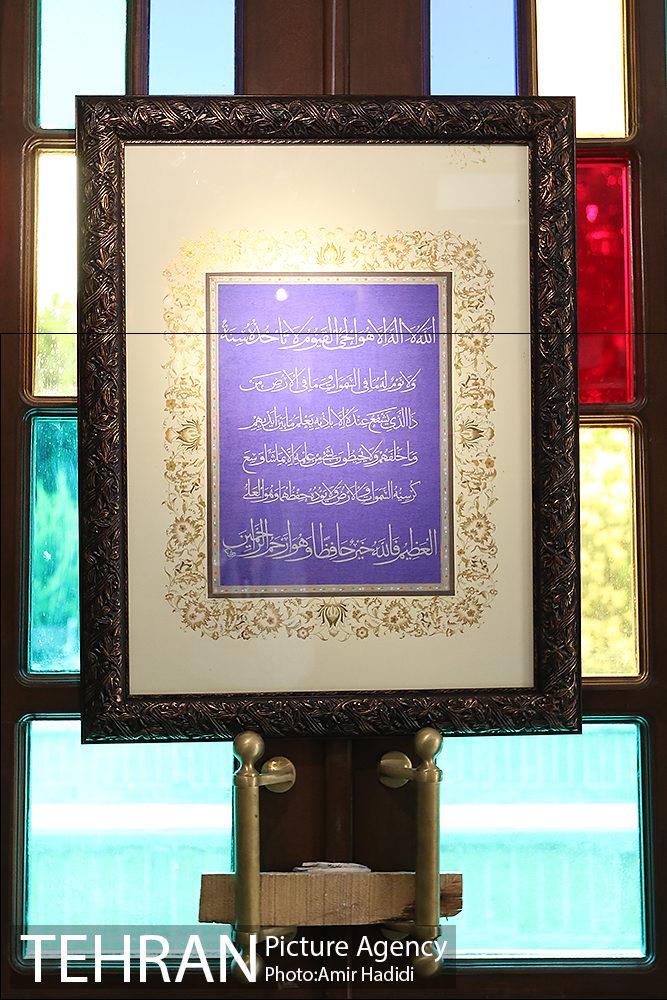 الله لا اله الا هو الحی القیوم لا تأخذه سنة
ولا نوم له ما فی السموات و ما فی الارض من
ذا الذی یشفع عنده الا باذنه یعلم ما بین ایدیهم
وما خلفهم ولا یحیطون بشیء من علمه الا بما شاء وسع
کرسیه السموات والارض ولا یوده حفظهما وهو العلی
العظیم فالله خیر حافظا وهو ارحم الراحمین
TEHRAN Picture Agency
Photo:Amir Hadidi